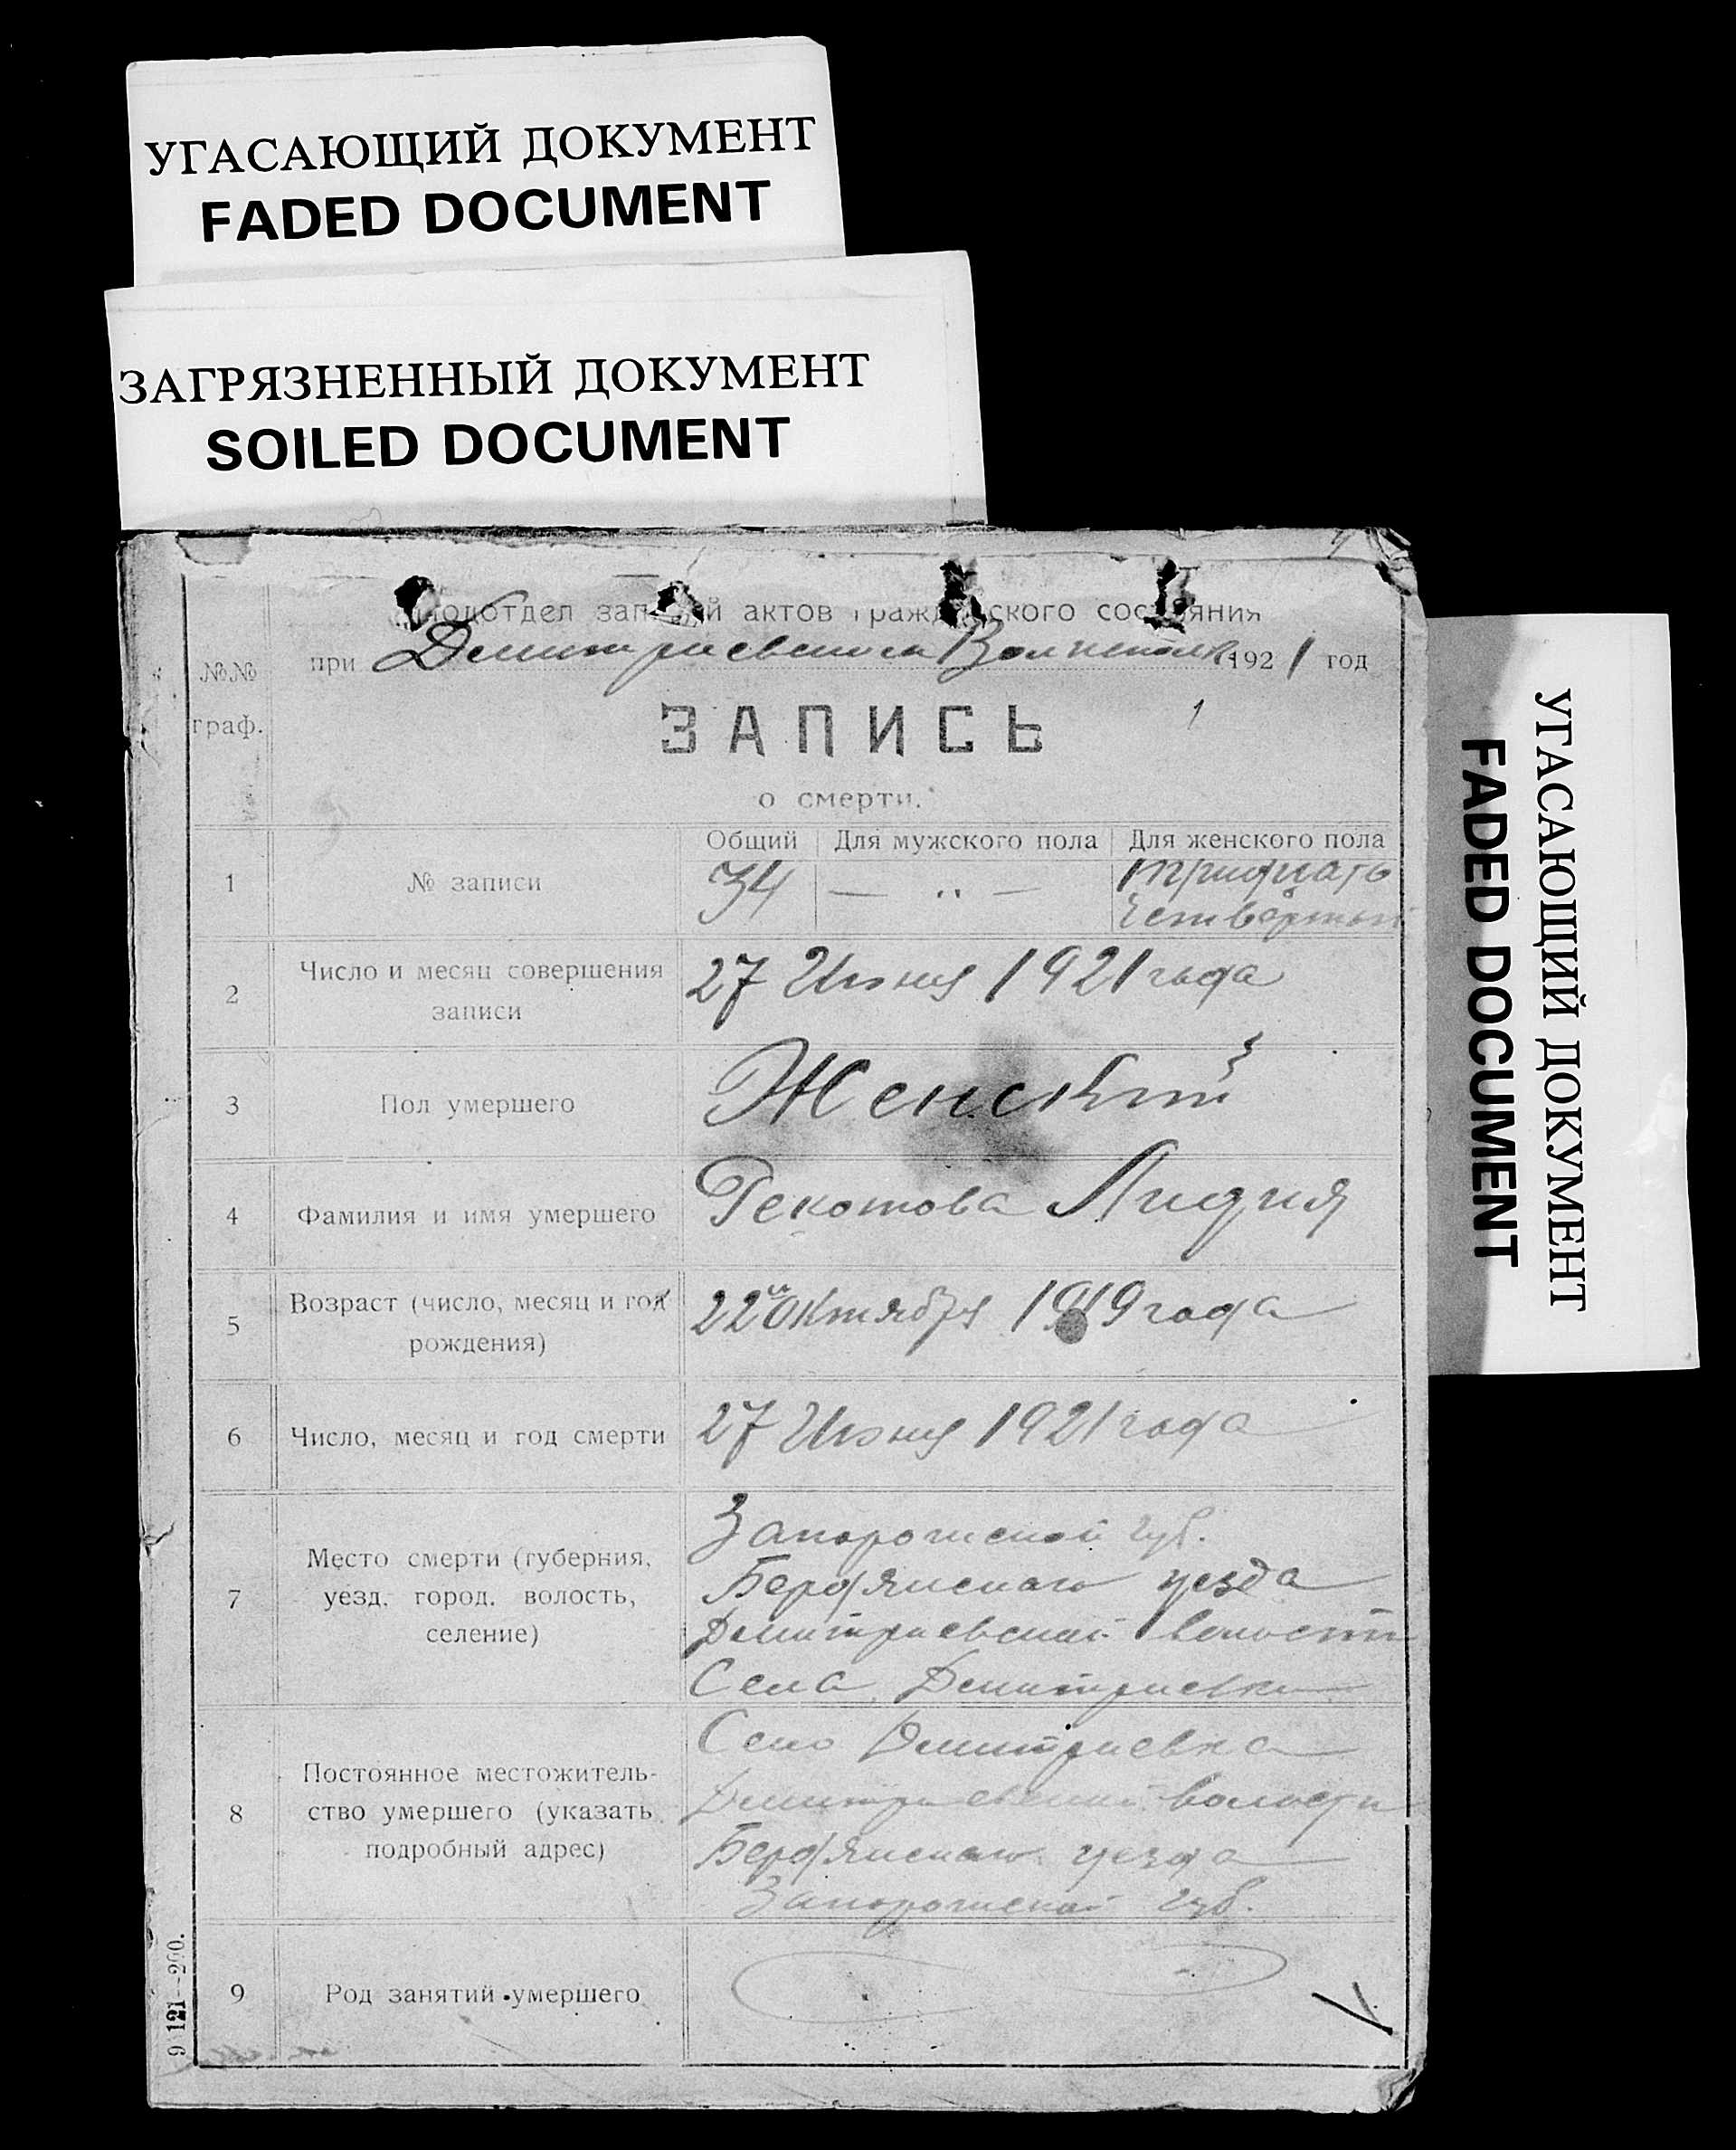 УГАСАЮЩИЙ ДОКУМЕНТ
FADED DOCUMENT
ЗАГРЯЗНЕННЫЙ ДОКУМЕНТ
SOILED DOCUMENT
Подотдел записей актов гражданского состояния
при 1921 год
№№
граф.
ЗАПИСЬ
1
о смерти.
Общий Для мужского пола Для женского пола
1 № записи 34 — „ — тридцать
2 Число и месяц совершения
записи
27 Июня 1921 года
3 Пол умершего Женский
4 Фамилия и имя умершего Рекотова Лидия
5 Возраст (число, месяц и год
рождения)
22го Октября 1919 года
6 Число, месяц и год смерти 27 Июня 1921 года
7 Место смерти (губерния,
уезд, город, волость,
селение)
Запорожской губ.
Бердянского уезда
Дмитриевской волости
Села Дмитриевки
8 Постоянное местожитель-
ство умершего (указать
подробный адрес)
Село Дмитриевка
Дмитриевской волости
Бердянского уезда
Запорожской губ.
9 Род занятий умершего
УГАСАЮЩИЙ ДОКУМЕНТ
FADED DOCUMENT